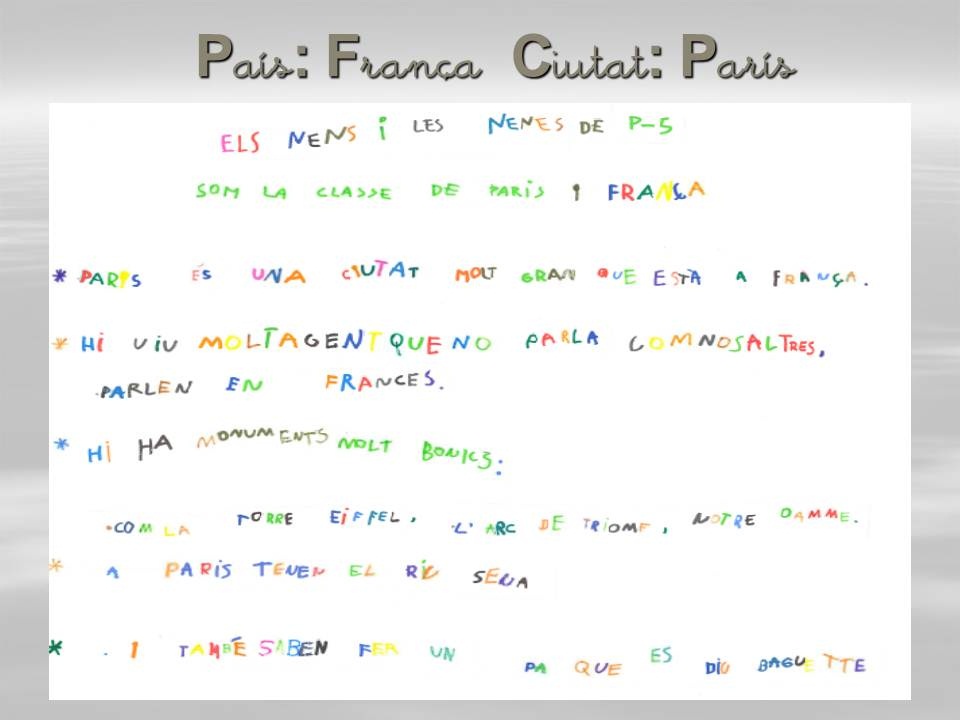 País: França Ciutat: París
ELS NENS i LES NENES DE P-5
SOM LA CLASSE DE PARiS I FRANÇA
* PARIS ÉS UNA CIUTAT MOLT GRAN QUE ESTÀ A FRANÇA.
* Hi ViU MOLTAGENT QUE NO PARLA COM NOSALTRES,
PARLEN EN FRANCES.
* Hi HA MONUMENTS MOLT BONICS:
.COM LA TORRE EiFFEL, L'ARC DE TRiOMF, NOTRE DAMME.
* A PARiS TENEN EL RiU SENA
* . I TAMBÉ SABEN FER UN PA QUE ES DiU BAGUETTE